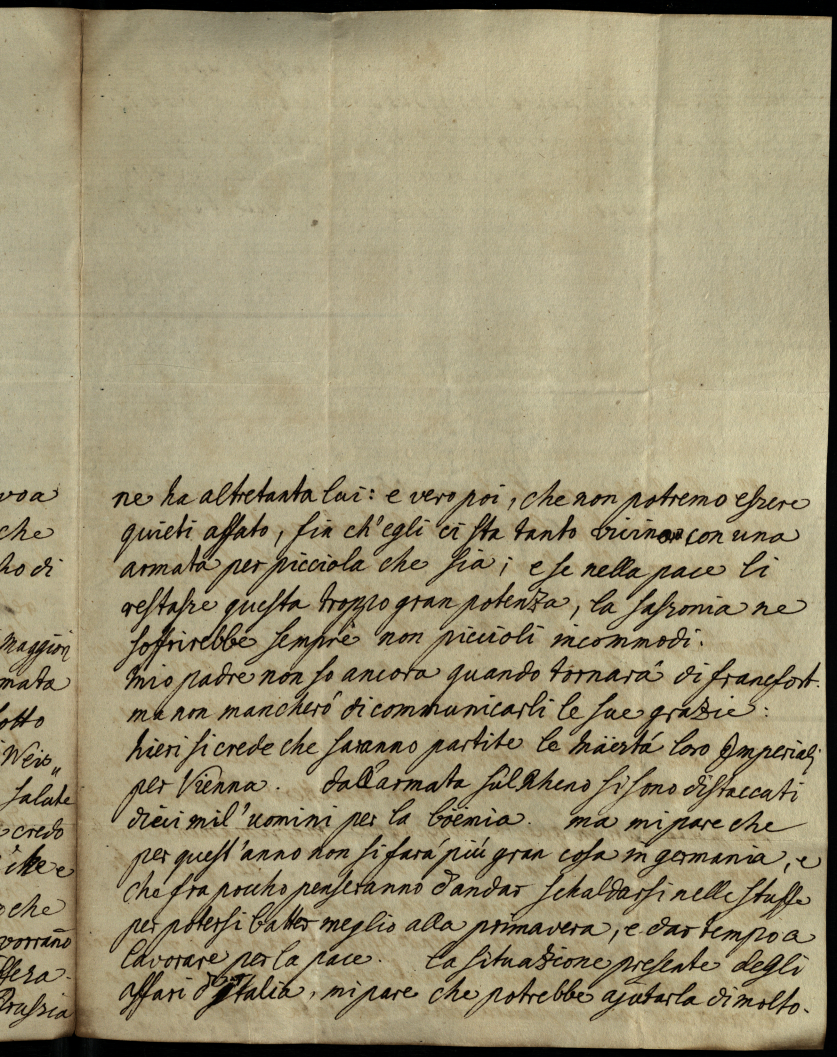 voa
che
ho di
maggiori
mata
sotto
Weis„
salute
credo
che e
che
vorrano
ssera.
Prussia
ne ha altretanta lui: e vero poi, che non potremo essere
quieti affato, fin ch'egli ci sta tanto vicino con una
armata per picciola che sia; e se nella pace li
restasse questa troppo gran potenza, la sassonia ne
soffrirebbe sempre non piccioli incommodi.
Mio padre non so ancora quando tornará di francfort.
ma non mancheró di communicarli le sue grazie:
hieri si crede che saranno partite le Maestá loro Imperiali
per Vienna. dall'armata sul Rheno si sono distaccati
dieci mil'uomini per la boemia. ma mi pare che
per quest'anno non si fará piú gran cosa in germania, e
che fra pocho penseranno d'andar schaldarsi nelle stuffe
per potersi batter meglio alla primavera, e dar tempo a
lavorare per la pace. la situazione presente degli
affari d'Italia, mi pare che potrebbe ajutarla di molto.